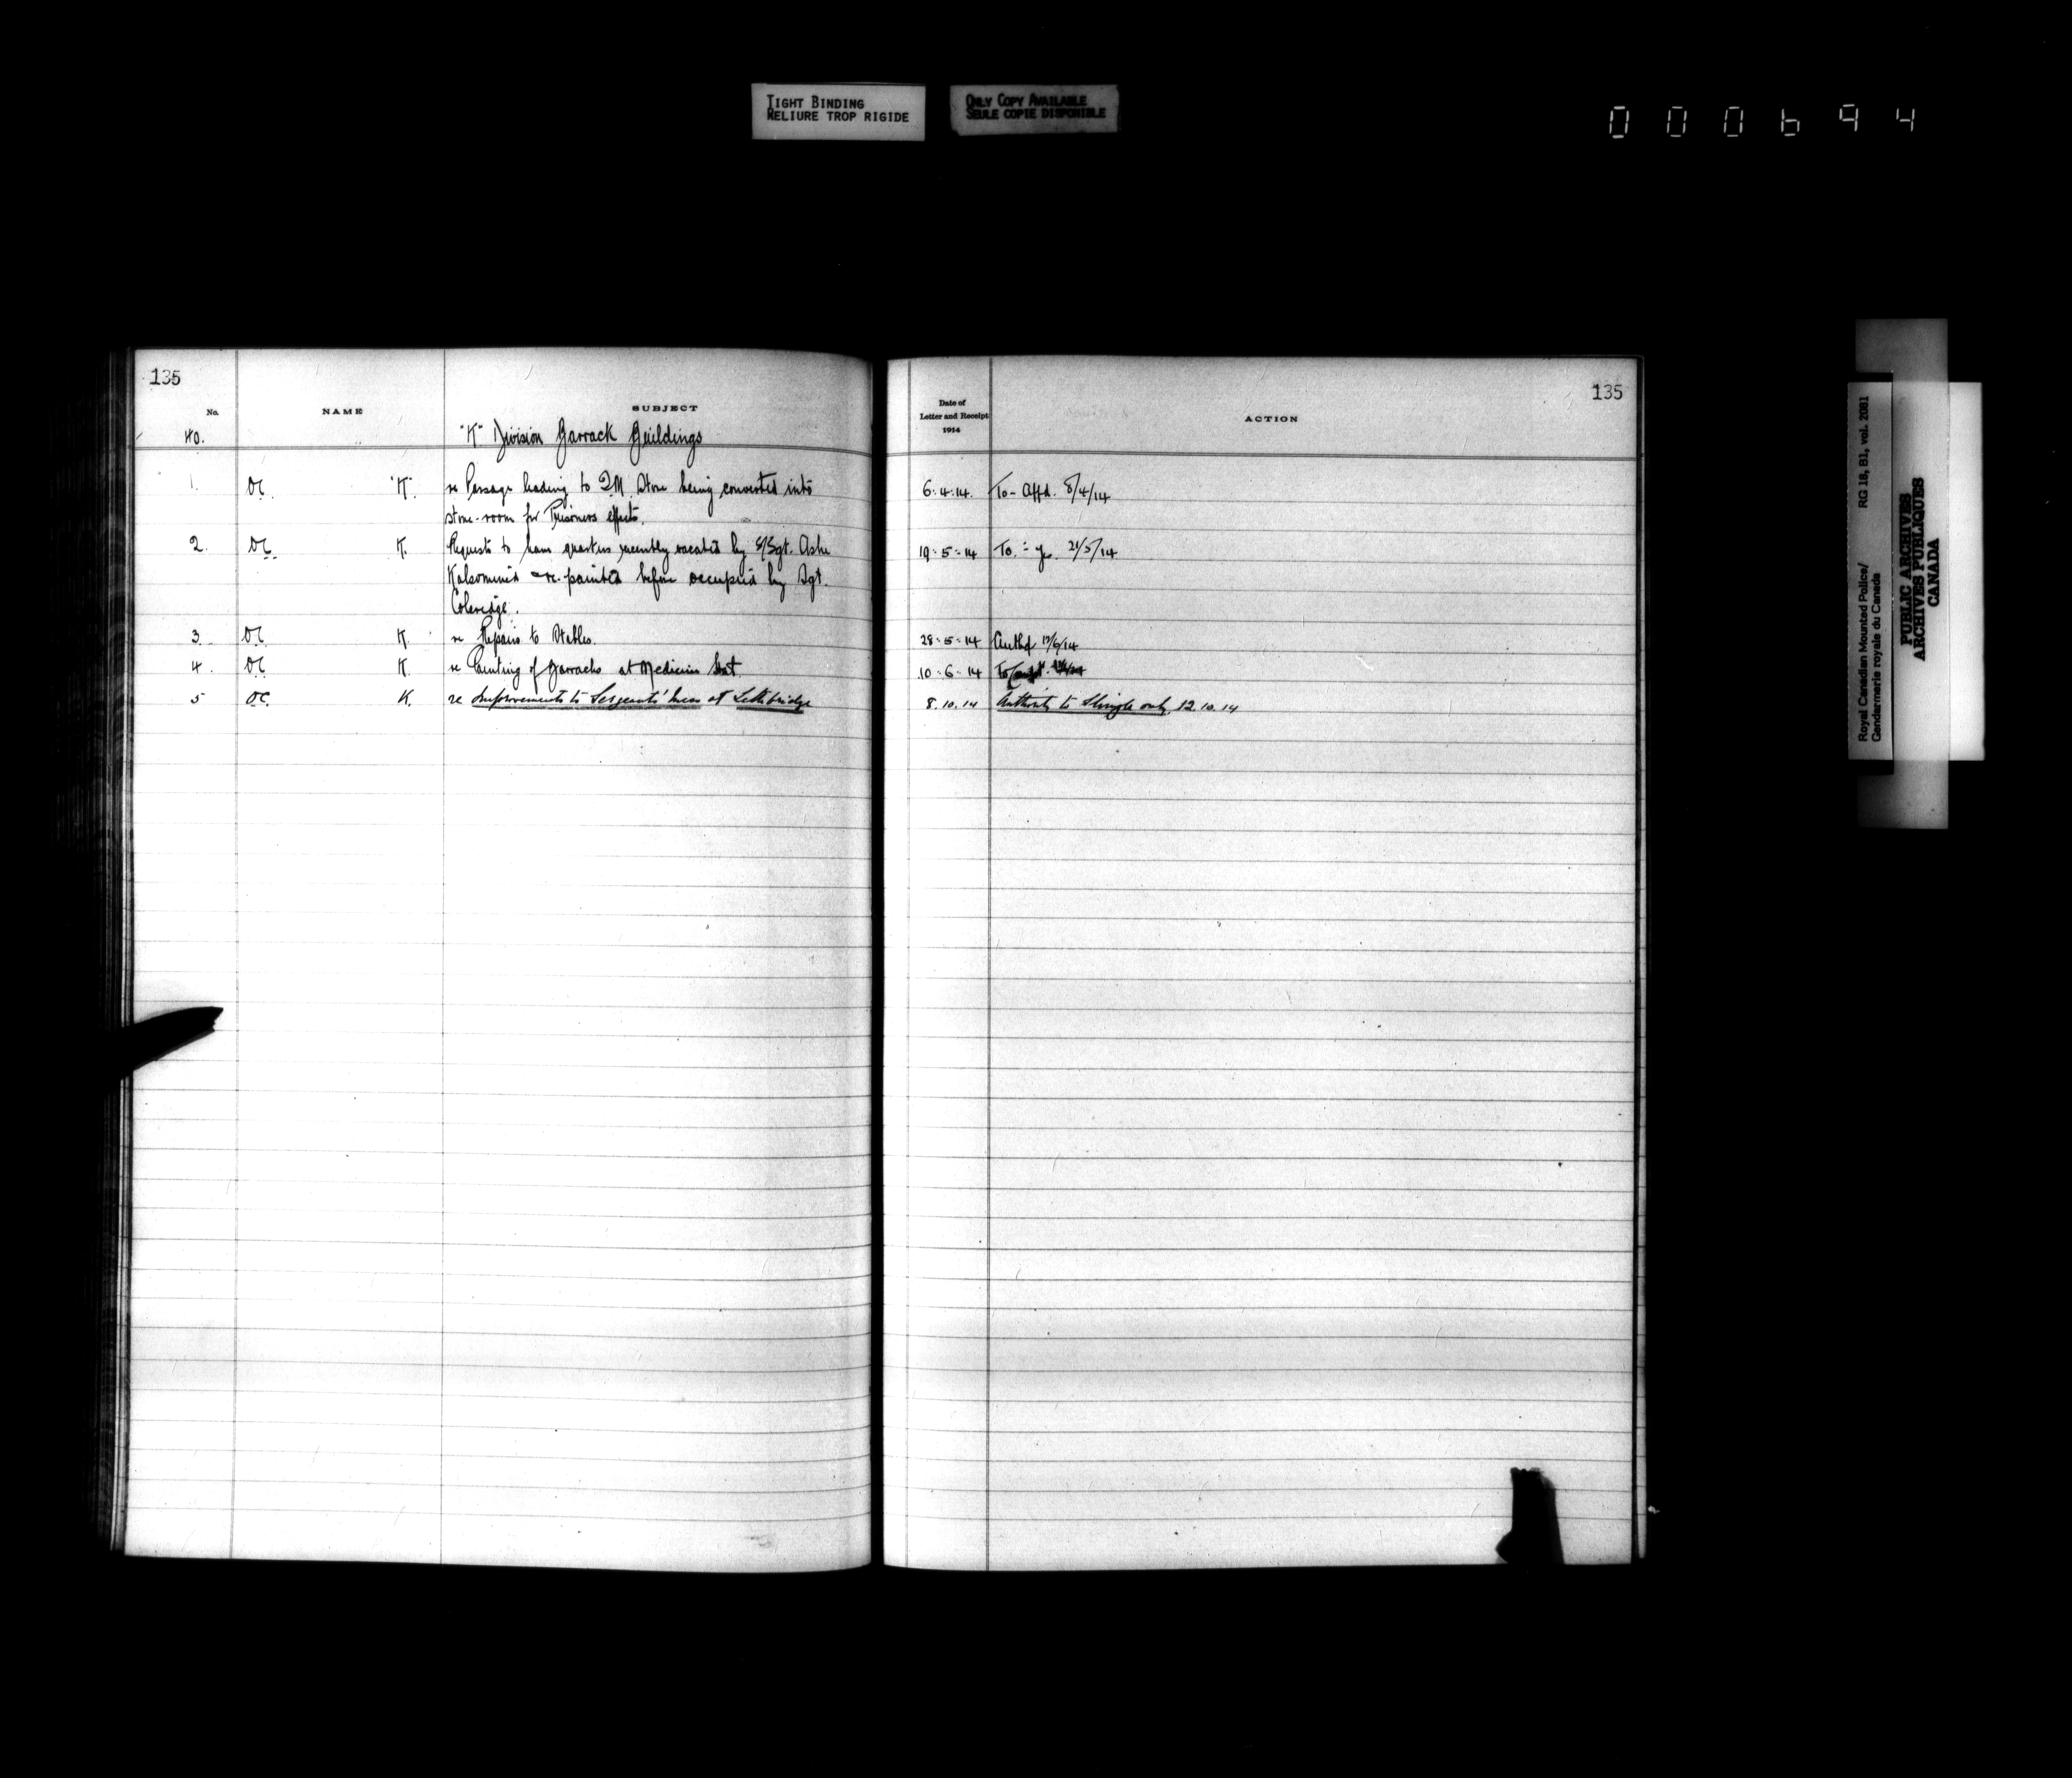 TIGHT BINDING
RELIURE TROP RIGIDE
ONLY COPY AVAILABLE
SEULE COPIE DISPONIBLE
000694
135
No.
NAME
SUBJECT
40.
"K" Division Barrack Buildings
1. OC. "K". re Passage leading to Q.M. Store being converted into
store-room for Prisoners effects.
2. OC. K. Requests to have quarters recently vacated by S/Sgt. Ashe
Kalsomined & re-painted before occupied by Sgt.
Coleridge.
3. OC K. re Repairs to Stables.
4. OC K. re Painting of Barracks at Medicine Hat.
5 OC. K. re Improvements to Sergeants' Mess at Lethbridge
135
Date of
Letter and Receipt
1914
ACTION
6.4.14. To - Affd. 8/4/14
19.5.14 To. - yes. 21/5/14
28.5.14 Authd 12/6/14
10.6.14 To
8.10.14 Authority to Shingle only. 12.10.14
Royal Canadian Mounted Police/ RG 18, B1, vol. 2081
Gendarmerie royale du Canada
PUBLIC ARCHIVES
ARCHIVES PUBLIQUES
CANADA